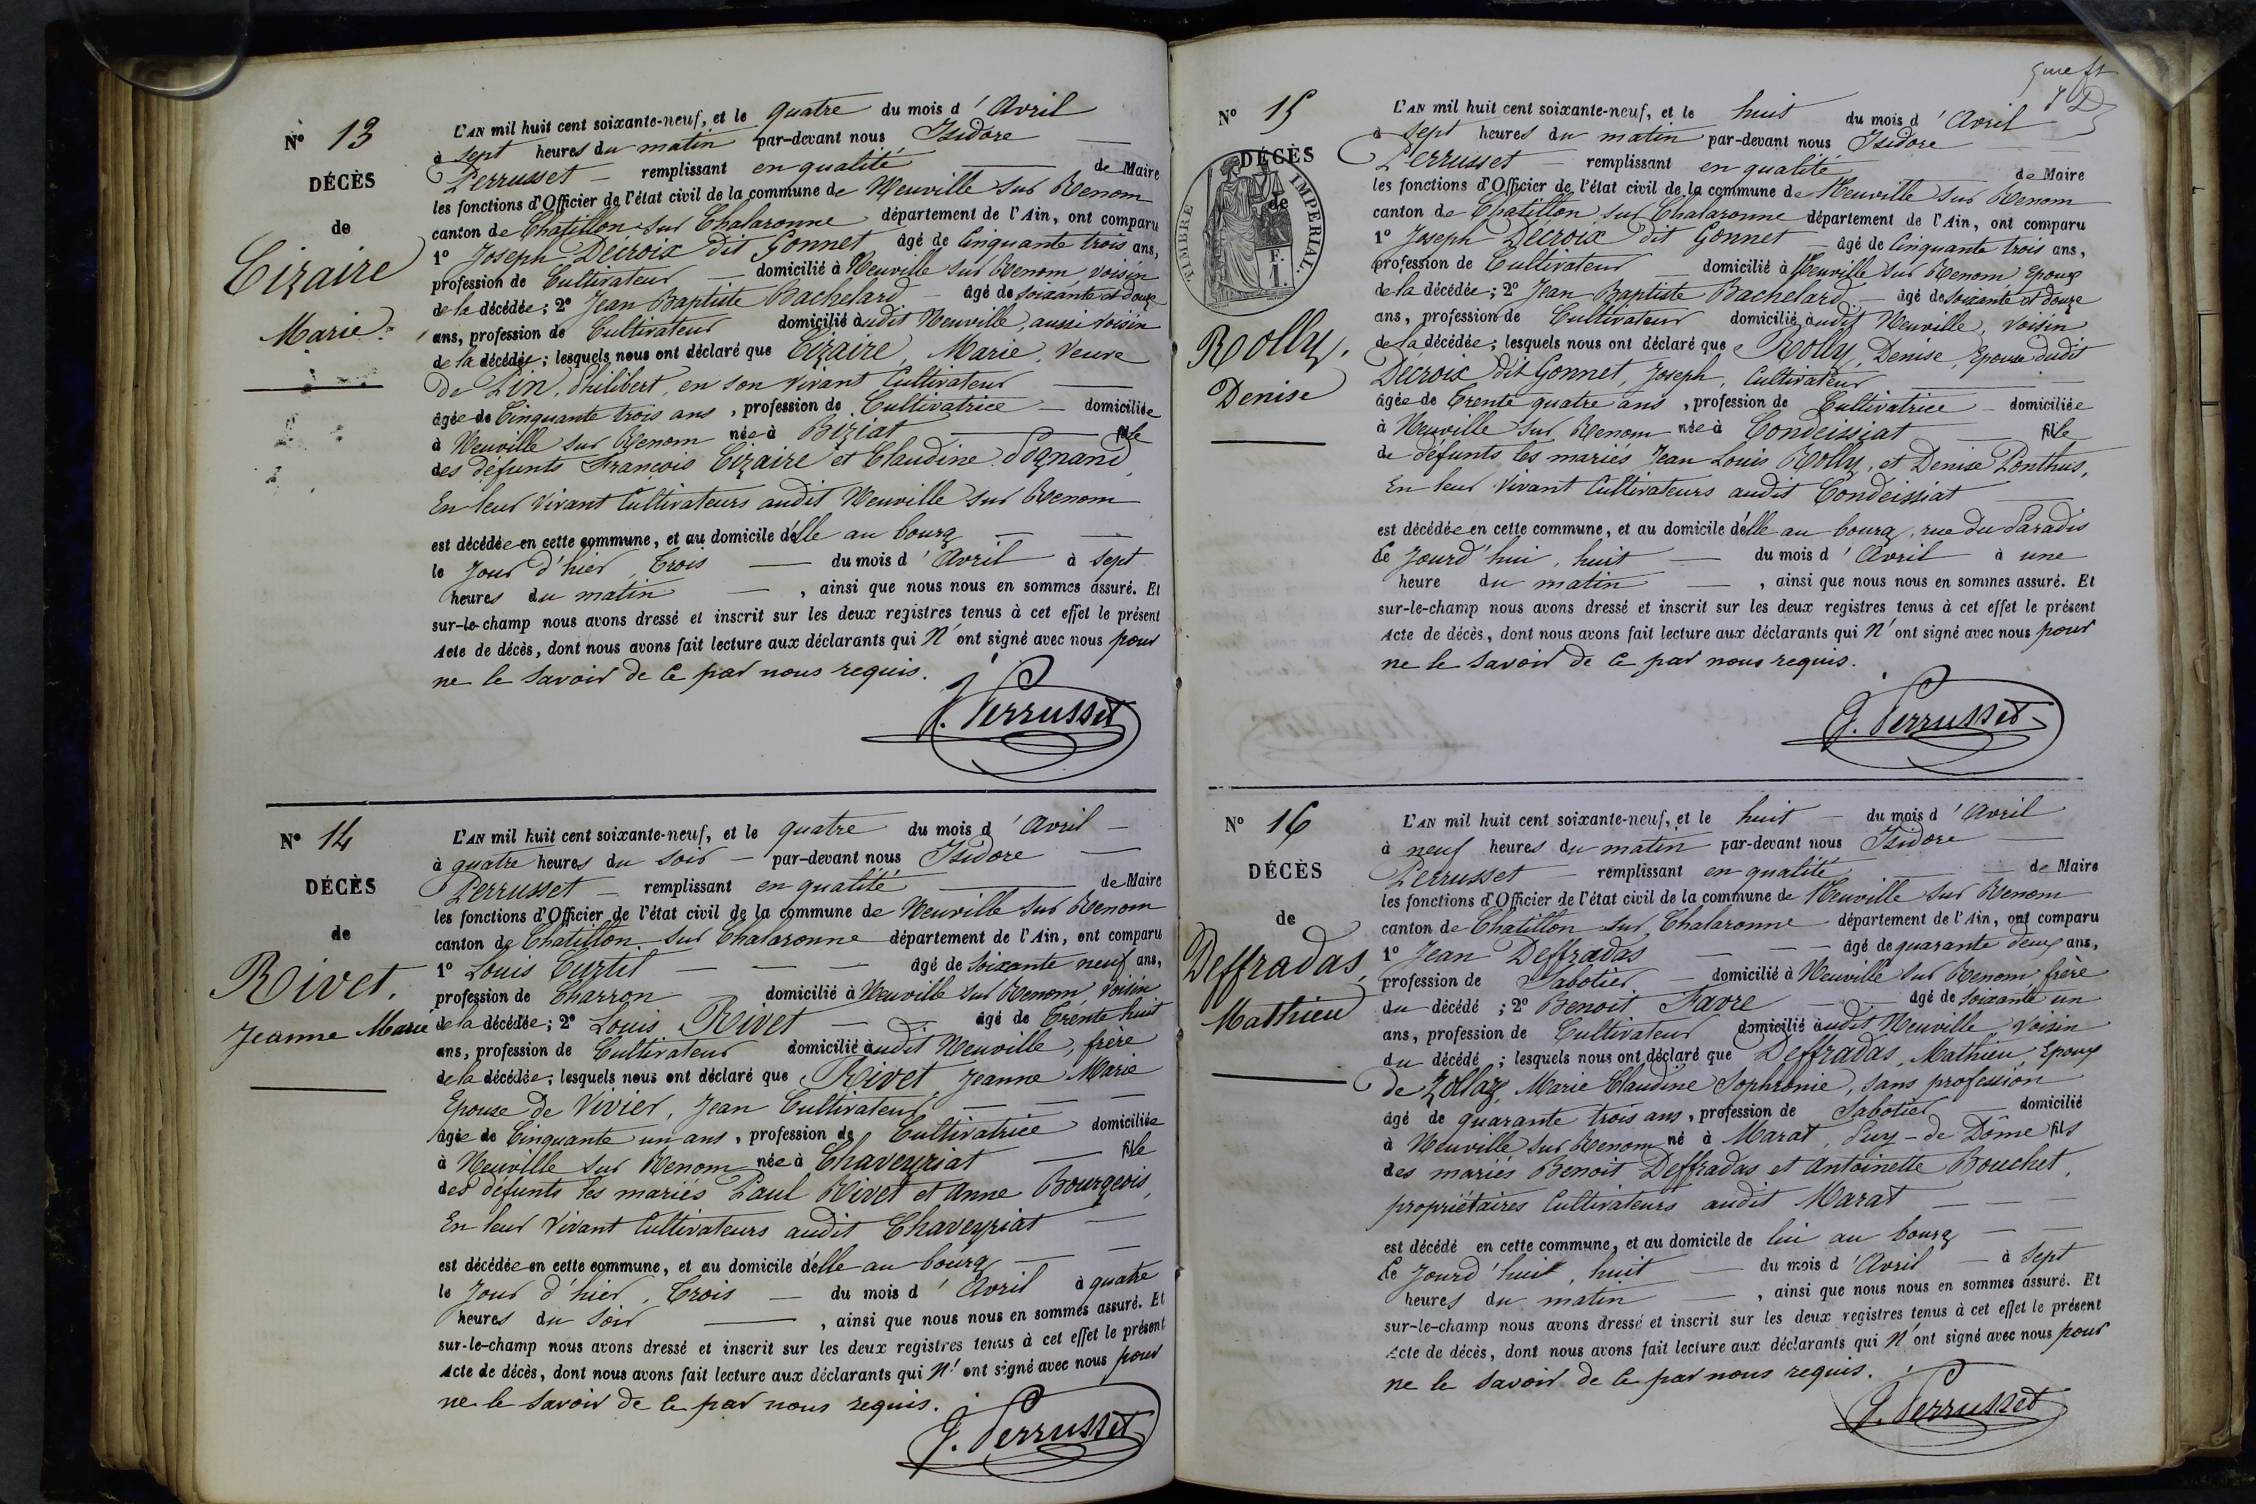 N° 13
DÉCÈS
de
Cizaire
Marie
L'AN mil huit cent soixante-neuf, et le quatre du mois d'Avril
à sept heures du matin par-devant nous Isidore
Perrusset remplissant en qualité de Maire
les fonctions d'Officier de l'état civil de la commune de Neuville sur Renom
canton de Chatillon sur Chalaronne département de l'Ain, ont comparu
1° Joseph Decroix dit Gonnet âgé de Cinquante trois ans,
profession de Cultivateur domicilié à Neuville sur Renom voisin
de la décédée ; 2° Jean Baptiste Bachelard âgé de soixante et douze
ans, profession de Cultivateur domicilié audit Neuville, aussi voisin
de la décédée ; lesquels nous ont déclaré que Cizaire, Marie, Veuve
De Lin, Philibert, en son vivant Cultivateur
âgée de Cinquante trois ans, profession de Cultivatrice domiciliée
à Neuville sur Renom née à Biziat fille
des défunts François Cizaire et Claudine Pognand,
En leur vivant Cultivateurs audit Neuville sur Renom
est décédée en cette commune, et au domicile d'elle au bourg
le Jour d'hier, Trois du mois d'Avril à sept
heures du matin, ainsi que nous nous en sommes assuré. Et
sur-le-champ nous avons dressé et inscrit sur les deux registres tenus à cet effet le présent
Acte de décès, dont nous avons fait lecture aux déclarants qui N'ont signé avec nous pour
ne le savoir de ce par nous requis.
J. Perrusset
N° 14
DÉCÈS
de
Rivet.
Jeanne Marie
L'AN mil huit cent soixante-neuf, et le quatre du mois d'Avril
à quatre heures du soir par-devant nous Isidore
Perrusset remplissant en qualité de Maire
les fonctions d'Officier de l'état civil de la commune de Neuville sur Renom
canton de Chatillon sur Chalaronne département de l'Ain, ont comparu
1° Louis Curtil âgé de soixante neuf ans,
profession de Charron domicilié à Neuville sur Renom voisin
de la décédée ; 2° Louis Rivet âgé de Trente huit
ans, profession de Cultivateur domicilié audit Neuville, frère
de la décédée, lesquels nous ont déclaré que Rivet Jeanne Marie
Epouse de Vivier, Jean Cultivateur
âgée de Cinquante un ans, profession de Cultivatrice domiciliée
à Neuville sur Renom née à Chaveyriat fille
des défunts les mariés Paul Rivet et Anne Bourgeois,
En leur vivant Cultivateurs audit Chaveyriat
est décédée en cette commune, et au domicile d'elle au bourg
le Jour d'hier, Trois du mois d'Avril à quatre
heures du soir, ainsi que nous nous en sommes assuré. Et
sur-le-champ nous avons dressé et inscrit sur les deux registres tenus à cet effet le présent
Acte de décès, dont nous avons fait lecture aux déclarants qui N'ont signé avec nous pour
ne le savoir de ce par nous requis.
J. Perrusset
N° 15
DÉCÈS
de
TIMBRE IMPERIAL.
F.
1
Rolly,
Denise
L'AN mil huit cent soixante-neuf, et le huit du mois d'Avril
à sept heures du matin par-devant nous Isidore
Perrusset remplissant en qualité de Maire
les fonctions d'Officier de l'état civil de la commune de Neuville sur Renom
canton de Chatillon sur Chalaronne département de l'Ain, ont comparu
1° Joseph Decroix dit Gonnet âgé de Cinquante trois ans,
profession de Cultivateur domicilié à Neuville sur Renom Epoux
de la décédée ; 2° Jean Baptiste Bachelard âgé de soixante et douze
ans, profession de Cultivateur domicilié audit Neuville, voisin
de la décédée ; lesquels nous ont déclaré que Rolly, Denise, Epouse dudit
Décroix dit Gonnet, Joseph, Cultivateur
âgée de Trente quatre ans, profession de Cultivatrice domiciliée
à Neuville sur Renom née à Condeissiat fille
de défunts les mariés Jean Louis Rolly, et Denise Ponthus,
En leur vivant Cultivateurs audit Condeissiat
est décédée en cette commune, et au domicile d'elle au bourg, rue du Paradis
Ce Jourd'hui, huit du mois d'Avril à une
heure du matin, ainsi que nous nous en sommes assuré. Et
sur-le-champ nous avons dressé et inscrit sur les deux registres tenus à cet effet le présent
Acte de décès, dont nous avons fait lecture aux déclarants qui N'ont signé avec nous pour
ne le savoir de ce par nous requis.
J. Perrusset
N° 16
DÉCÈS
de
Deffradas,
Mathieu
L'AN mil huit cent soixante-neuf, et le huit du mois d'Avril
à neuf heures du matin par-devant nous Isidore
Perrusset remplissant en qualité de Maire
les fonctions d'Officier de l'état civil de la commune de Neuville sur Renom
canton de Chatillon sur Chalaronne département de l'Ain, ont comparu
1° Jean Deffradas âgé de quarante deux ans,
profession de Sabotier domicilié à Neuville sur Renom frère
du décédé ; 2° Benoit Favre âgé de soixante un
ans, profession de Cultivateur domicilié audit Neuville voisin
du décédé ; lesquels nous ont déclaré que Deffradas, Mathieu, Epoux
de Zollaz, Marie Claudine Sophronie, sans profession
âgé de quarante trois ans, profession de Sabotier domicilié
à Neuville sur Renom né à Marat, Puy-de Dôme fils
des mariés Benoit Deffradas et Antoinette Bouchet,
propriétaires Cultivateurs audit Marat
est décédé en cette commune, et au domicile de lui au bourg
Ce Jourd'hui, huit du mois d'Avril à sept
heures du matin, ainsi que nous nous en sommes assuré. Et
sur-le-champ nous avons dressé et inscrit sur les deux registres tenus à cet effet le présent
Acte de décès, dont nous avons fait lecture aux déclarants qui N'ont signé avec nous pour
ne le savoir de ce par nous requis.
J. Perrusset